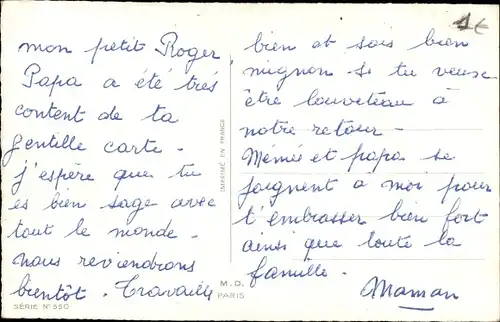 1€
mon petit Roger,
Papa a été très
content de ta
gentille carte.
j'espère que tu
es bien sage avec
tout le monde.
nous reviendrons
bientôt. Travaille
bien et sois bien
mignon si tu veux
être louveteau à
notre retour.
Mémée et papa se
joignent a moi pour
t'embrasser bien fort
ainsi que toute la
famille.
Maman
IMPRIMÉ EN FRANCE
M.D.
PARIS
SÉRIE N° 550